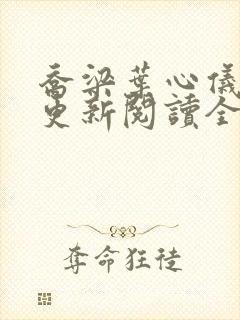 喬梁葉心儀
更新閱讀全
奪命狂徒